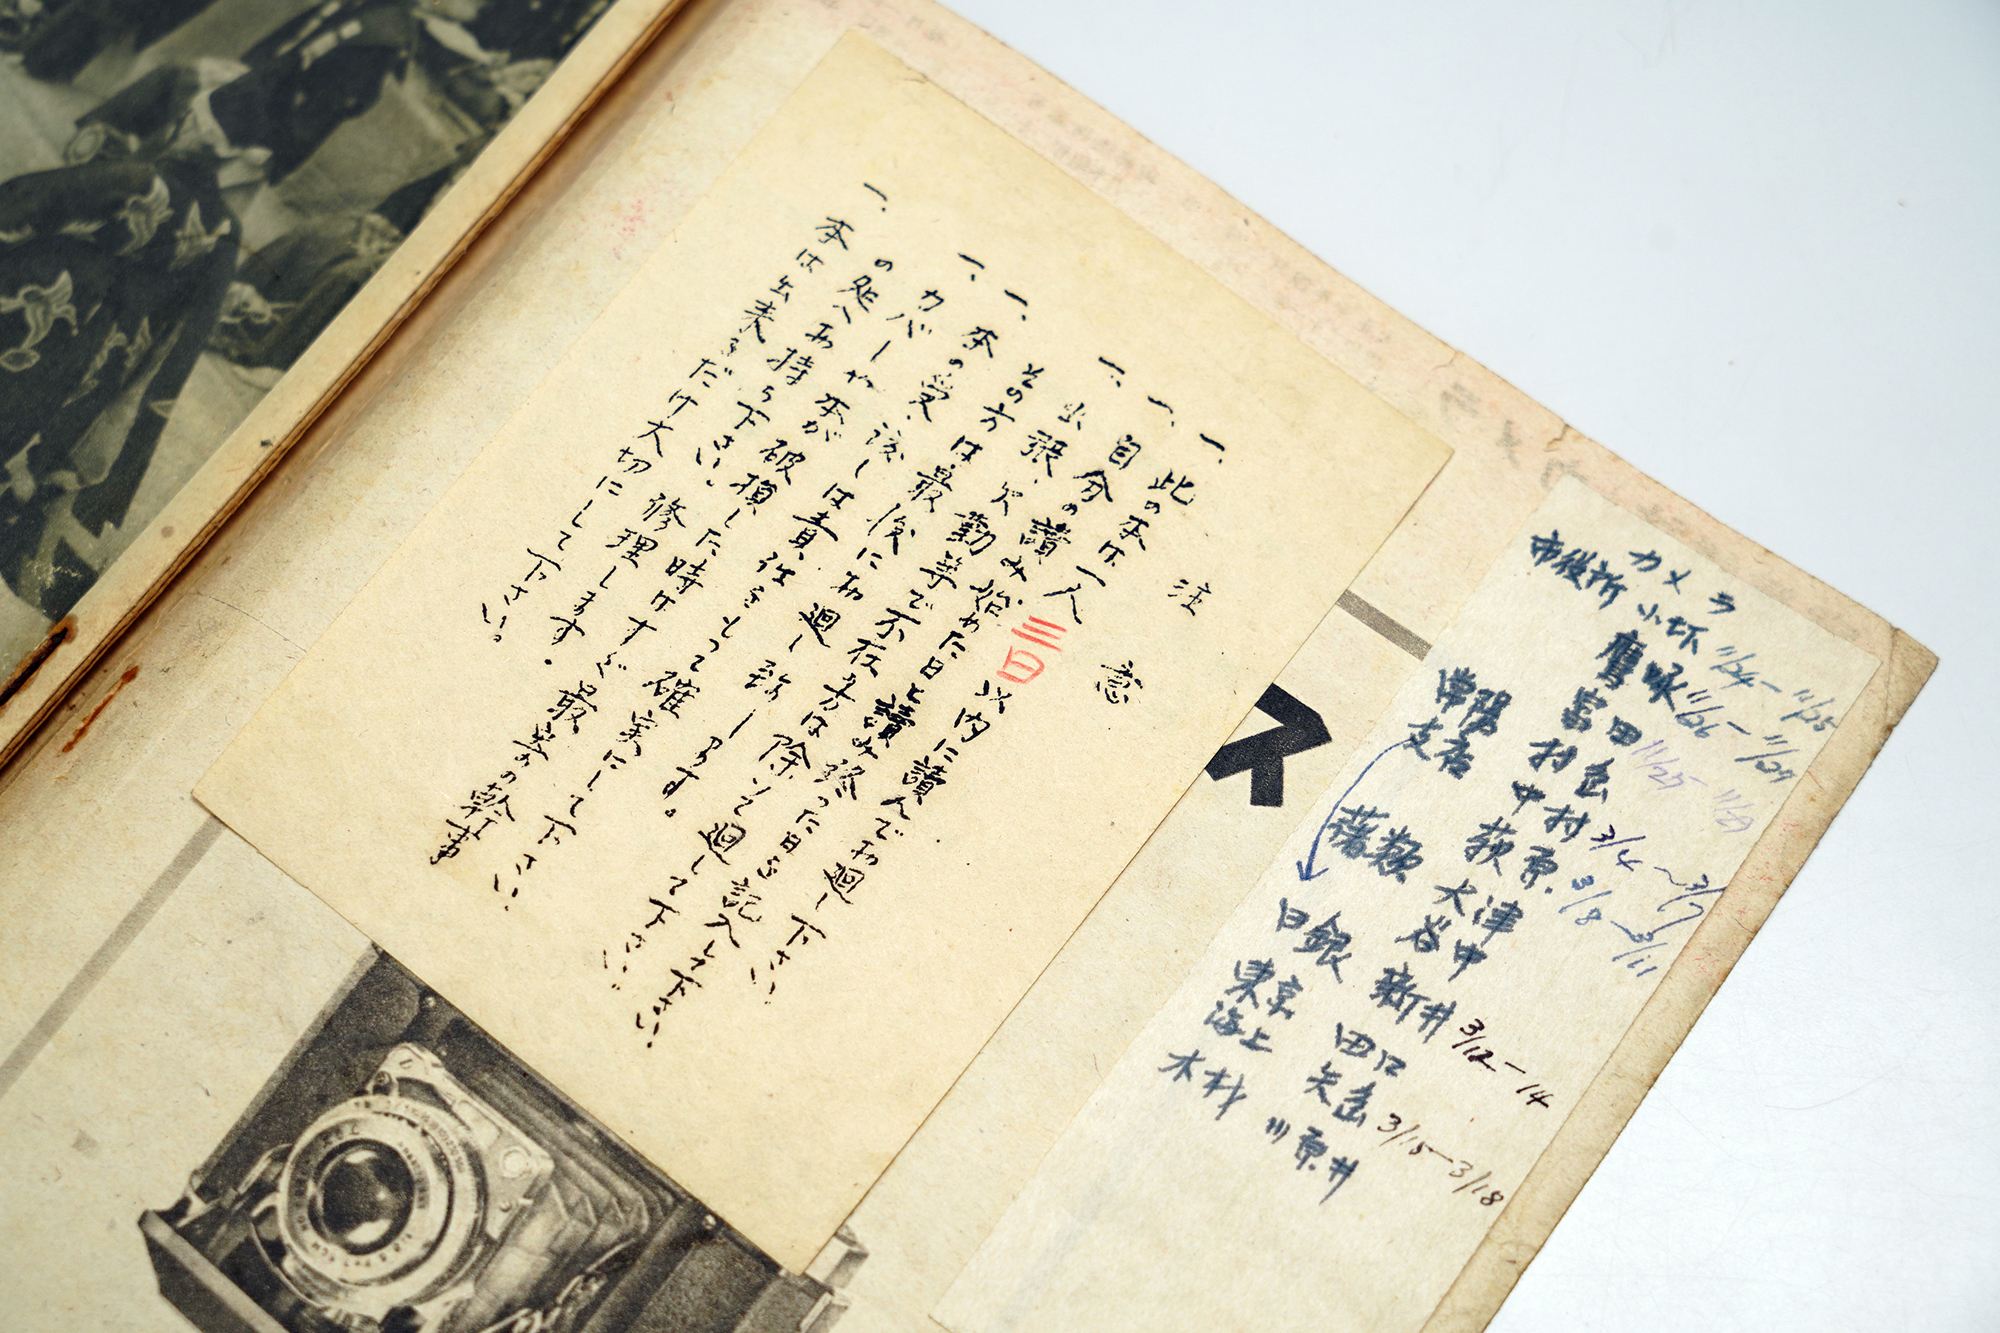 注意
一、此の本は一人三日以内に讀んでお廻し下さい。
一、自分の讀み始めた日と讀み終った日を記入して下さい。
一、出張、欠勤等で不在の方は除いて廻して下さい。
その方は最後にお廻し致します。
一、本の受渡しは責任をもって確実にして下さい。
一、カバーや本が破損した時はすぐ最寄の幹事
の処へお持ち下さい。修理します。
一、本は出来るだけ大切にして下さい。
ス
カメラ
市役所 小坏 11/24-11/25
11/26-11/27
富田 11/27-
常陽支店 村島
中村 3/4~3/7
荻原 3/8~3/11
大津
藷類 谷中
日銀 新井 3/12-14
田口
東京海上 矢島 3/15-3/18
木材 川原井